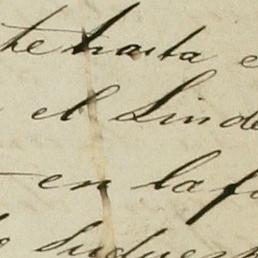 te hasta e
el Linde
en la fo
Sudues